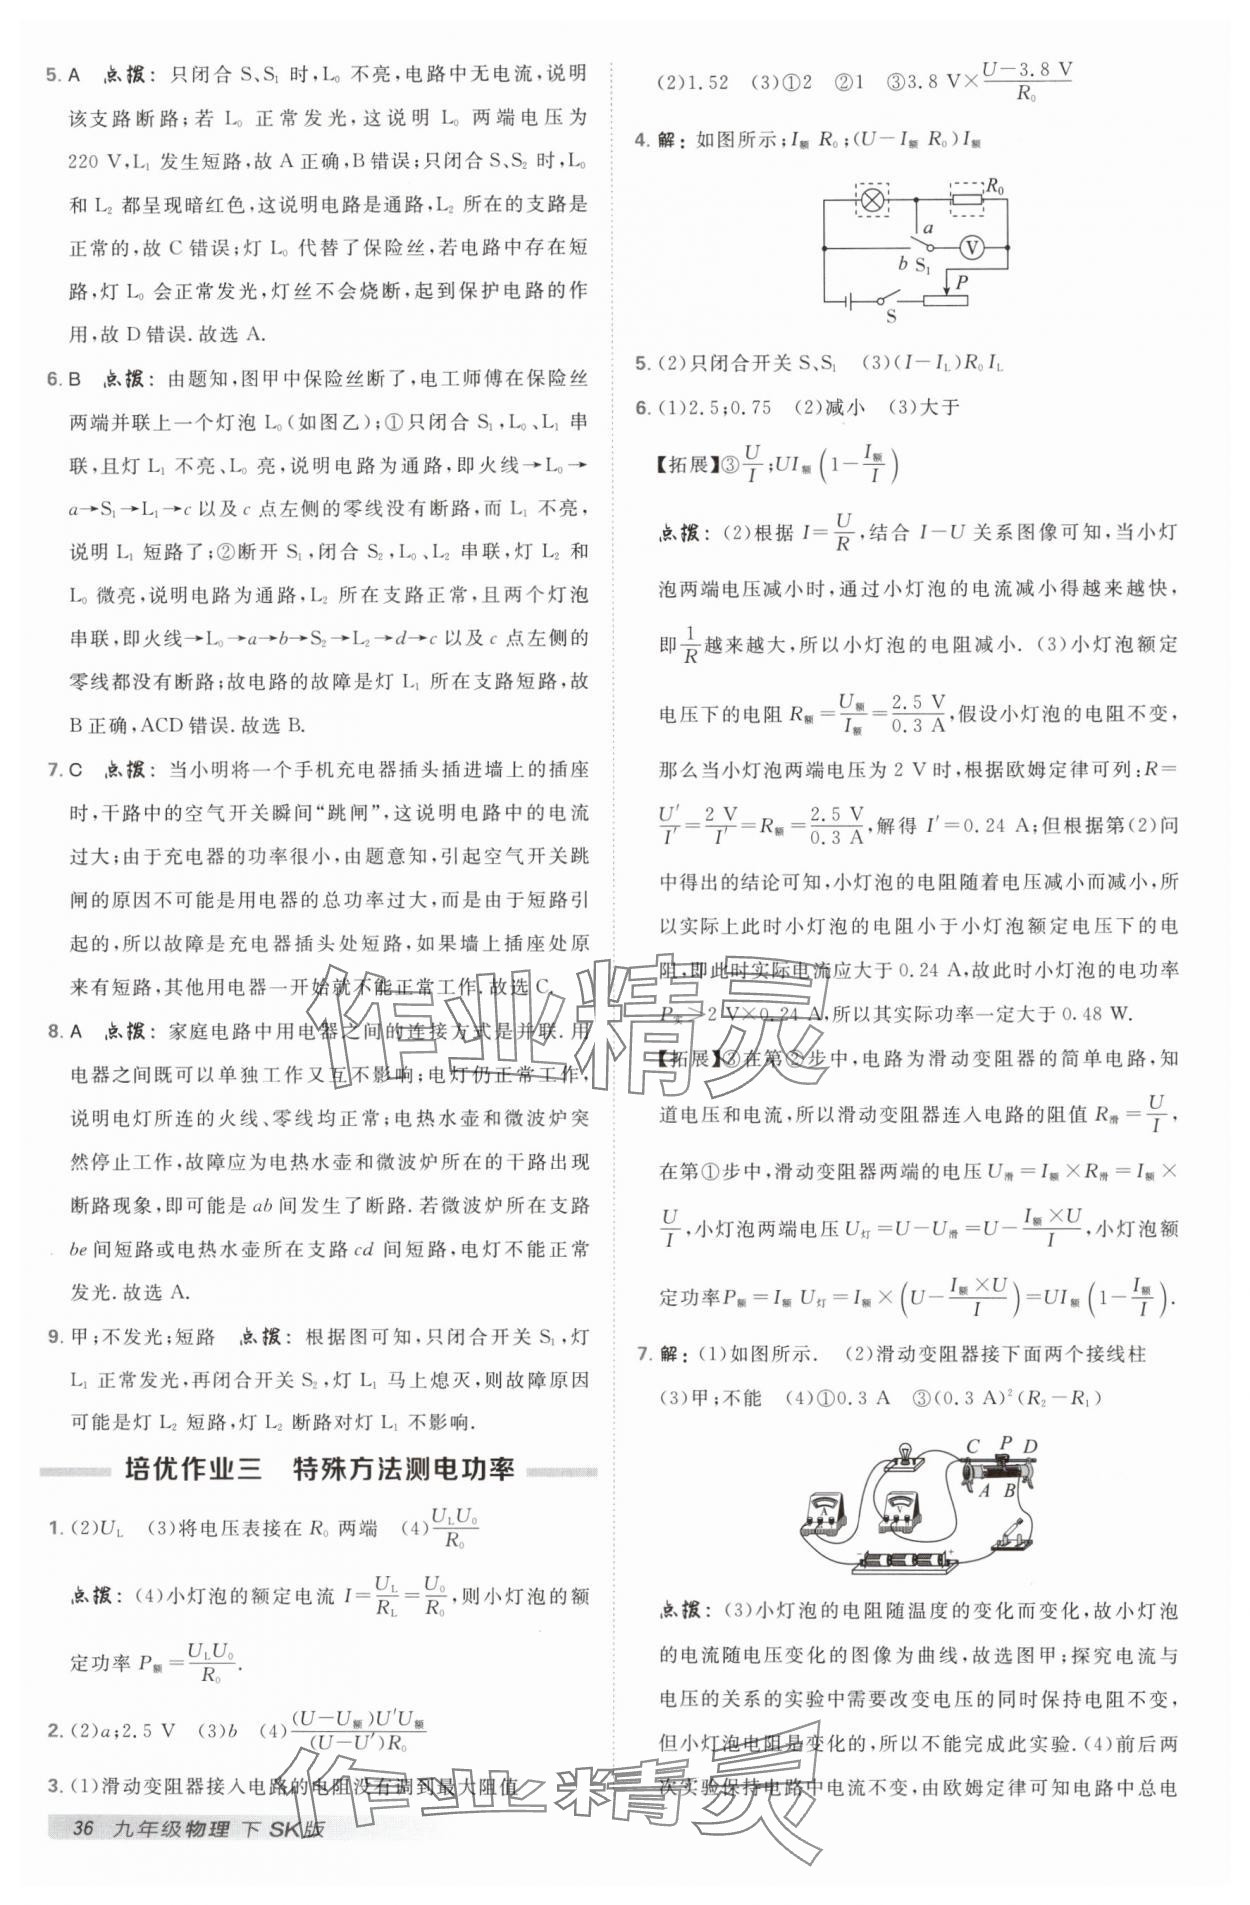 5. A 点拨：只闭合 S、S₁ 时，L₀ 不亮，电路中无电流，说明
该支路断路；若 L₀ 正常发光，这说明 L₀ 两端电压为
220 V，L₁ 发生短路，故 A 正确，B 错误；只闭合 S、S₂ 时，L₀
和 L₂ 都呈现暗红色，这说明电路是通路，L₂ 所在的支路是
正常的，故 C 错误；灯 L₀ 代替了保险丝，若电路中存在短
路，灯 L₀ 会正常发光，灯丝不会烧断，起到保护电路的作
用，故 D 错误.故选 A.
6. B 点拨：由题知，图甲中保险丝断了，电工师傅在保险丝
两端并联上一个灯泡 L₀（如图乙）；①只闭合 S₁，L₀、L₁ 串
联，且灯 L₁ 不亮、L₀ 亮，说明电路为通路，即火线→L₀→
a→S₁→L₁→c 以及 c 点左侧的零线没有断路，而 L₁ 不亮，
说明 L₁ 短路了；②断开 S₁，闭合 S₂，L₀、L₂ 串联，灯 L₂ 和
L₀ 微亮，说明电路为通路，L₂ 所在支路正常，且两个灯泡
串联，即火线→L₀→a→b→S₂→L₂→d→c 以及 c 点左侧的
零线都没有断路；故电路的故障是灯 L₁ 所在支路短路，故
B 正确，ACD 错误.故选 B.
7. C 点拨：当小明将一个手机充电器插头插进墙上的插座
时，干路中的空气开关瞬间“跳闸”，这说明电路中的电流
过大；由于充电器的功率很小，由题意知，引起空气开关跳
闸的原因不可能是用电器的总功率过大，而是由于短路引
起的，所以故障是充电器插头处短路，如果墙上插座处原
来有短路，其他用电器一开始就不能正常工作.故选 C.
8. A 点拨：家庭电路中用电器之间的连接方式是并联.用
电器之间既可以单独工作又互不影响；电灯仍正常工作，
说明电灯所连的火线、零线均正常；电热水壶和微波炉突
然停止工作，故障应为电热水壶和微波炉所在的干路出现
断路现象，即可能是 ab 间发生了断路.若微波炉所在支路
be 间短路或电热水壶所在支路 cd 间短路，电灯不能正常
发光.故选 A.
9. 甲；不发光；短路 点拨：根据图可知，只闭合开关 S₁，灯
L₁ 正常发光，再闭合开关 S₂，灯 L₁ 马上熄灭，则故障原因
可能是灯 L₂ 短路，灯 L₂ 断路对灯 L₁ 不影响.
培优作业三 特殊方法测电功率
1. (2)U_L (3)将电压表接在 R₀ 两端 (4)U_LU₀/R₀
点拨：(4)小灯泡的额定电流 I=U_L/R_L=U₀/R₀，则小灯泡的额
定功率 P额=U_LU₀/R₀.
2. (2)a；2.5 V (3)b (4)(U−U额)U′U额/(U−U′)R₀
3. (1)滑动变阻器接入电路的电阻没有调到最大阻值
36 九年级物理 下 SK版
(2)1.52 (3)①2 ②1 ③3.8 V×(U−3.8 V)/R₀
4. 解：如图所示；I额 R₀；(U−I额 R₀)I额
R₀
a
V
b S₁
P
S
5. (2)只闭合开关 S、S₁ (3)(I−I_L)R₀I_L
6. (1)2.5；0.75 (2)减小 (3)大于
【拓展】③U/I；UI额(1−I额/I)
点拨：(2)根据 I=U/R，结合 I−U 关系图像可知，当小灯
泡两端电压减小时，通过小灯泡的电流减小得越来越快，
即1/R越来越大，所以小灯泡的电阻减小.(3)小灯泡额定
电压下的电阻 R额=U额/I额=2.5 V/0.3 A，假设小灯泡的电阻不变，
那么当小灯泡两端电压为 2 V 时，根据欧姆定律可列：R=
U′/I′=2 V/I′=R额=2.5 V/0.3 A，解得 I′=0.24 A；但根据第(2)问
中得出的结论可知，小灯泡的电阻随着电压减小而减小，所
以实际上此时小灯泡的电阻小于小灯泡额定电压下的电
阻，即此时实际电流应大于 0.24 A，故此时小灯泡的电功率
P实>2 V×0.24 A，所以其实际功率一定大于 0.48 W.
【拓展】③在第②步中，电路为滑动变阻器的简单电路，知
道电压和电流，所以滑动变阻器连入电路的阻值 R滑=U/I，
在第①步中，滑动变阻器两端的电压 U滑=I额×R滑=I额×
U/I，小灯泡两端电压 U灯=U−U滑=U−(I额×U)/I，小灯泡额
定功率P额=I额 U灯=I额×(U−(I额×U)/I)=UI额(1−I额/I).
7. 解：(1)如图所示. (2)滑动变阻器接下面两个接线柱
(3)甲；不能 (4)①0.3 A ③(0.3 A)²(R₂−R₁)
C P D
A B
A
V
− +
点拨：(3)小灯泡的电阻随温度的变化而变化，故小灯泡
的电流随电压变化的图像为曲线，故选图甲；探究电流与
电压的关系的实验中需要改变电压的同时保持电阻不变，
但小灯泡电阻是变化的，所以不能完成此实验.(4)前后两
次实验保持电路中电流不变，由欧姆定律可知电路中总电
作业精灵
作业精灵